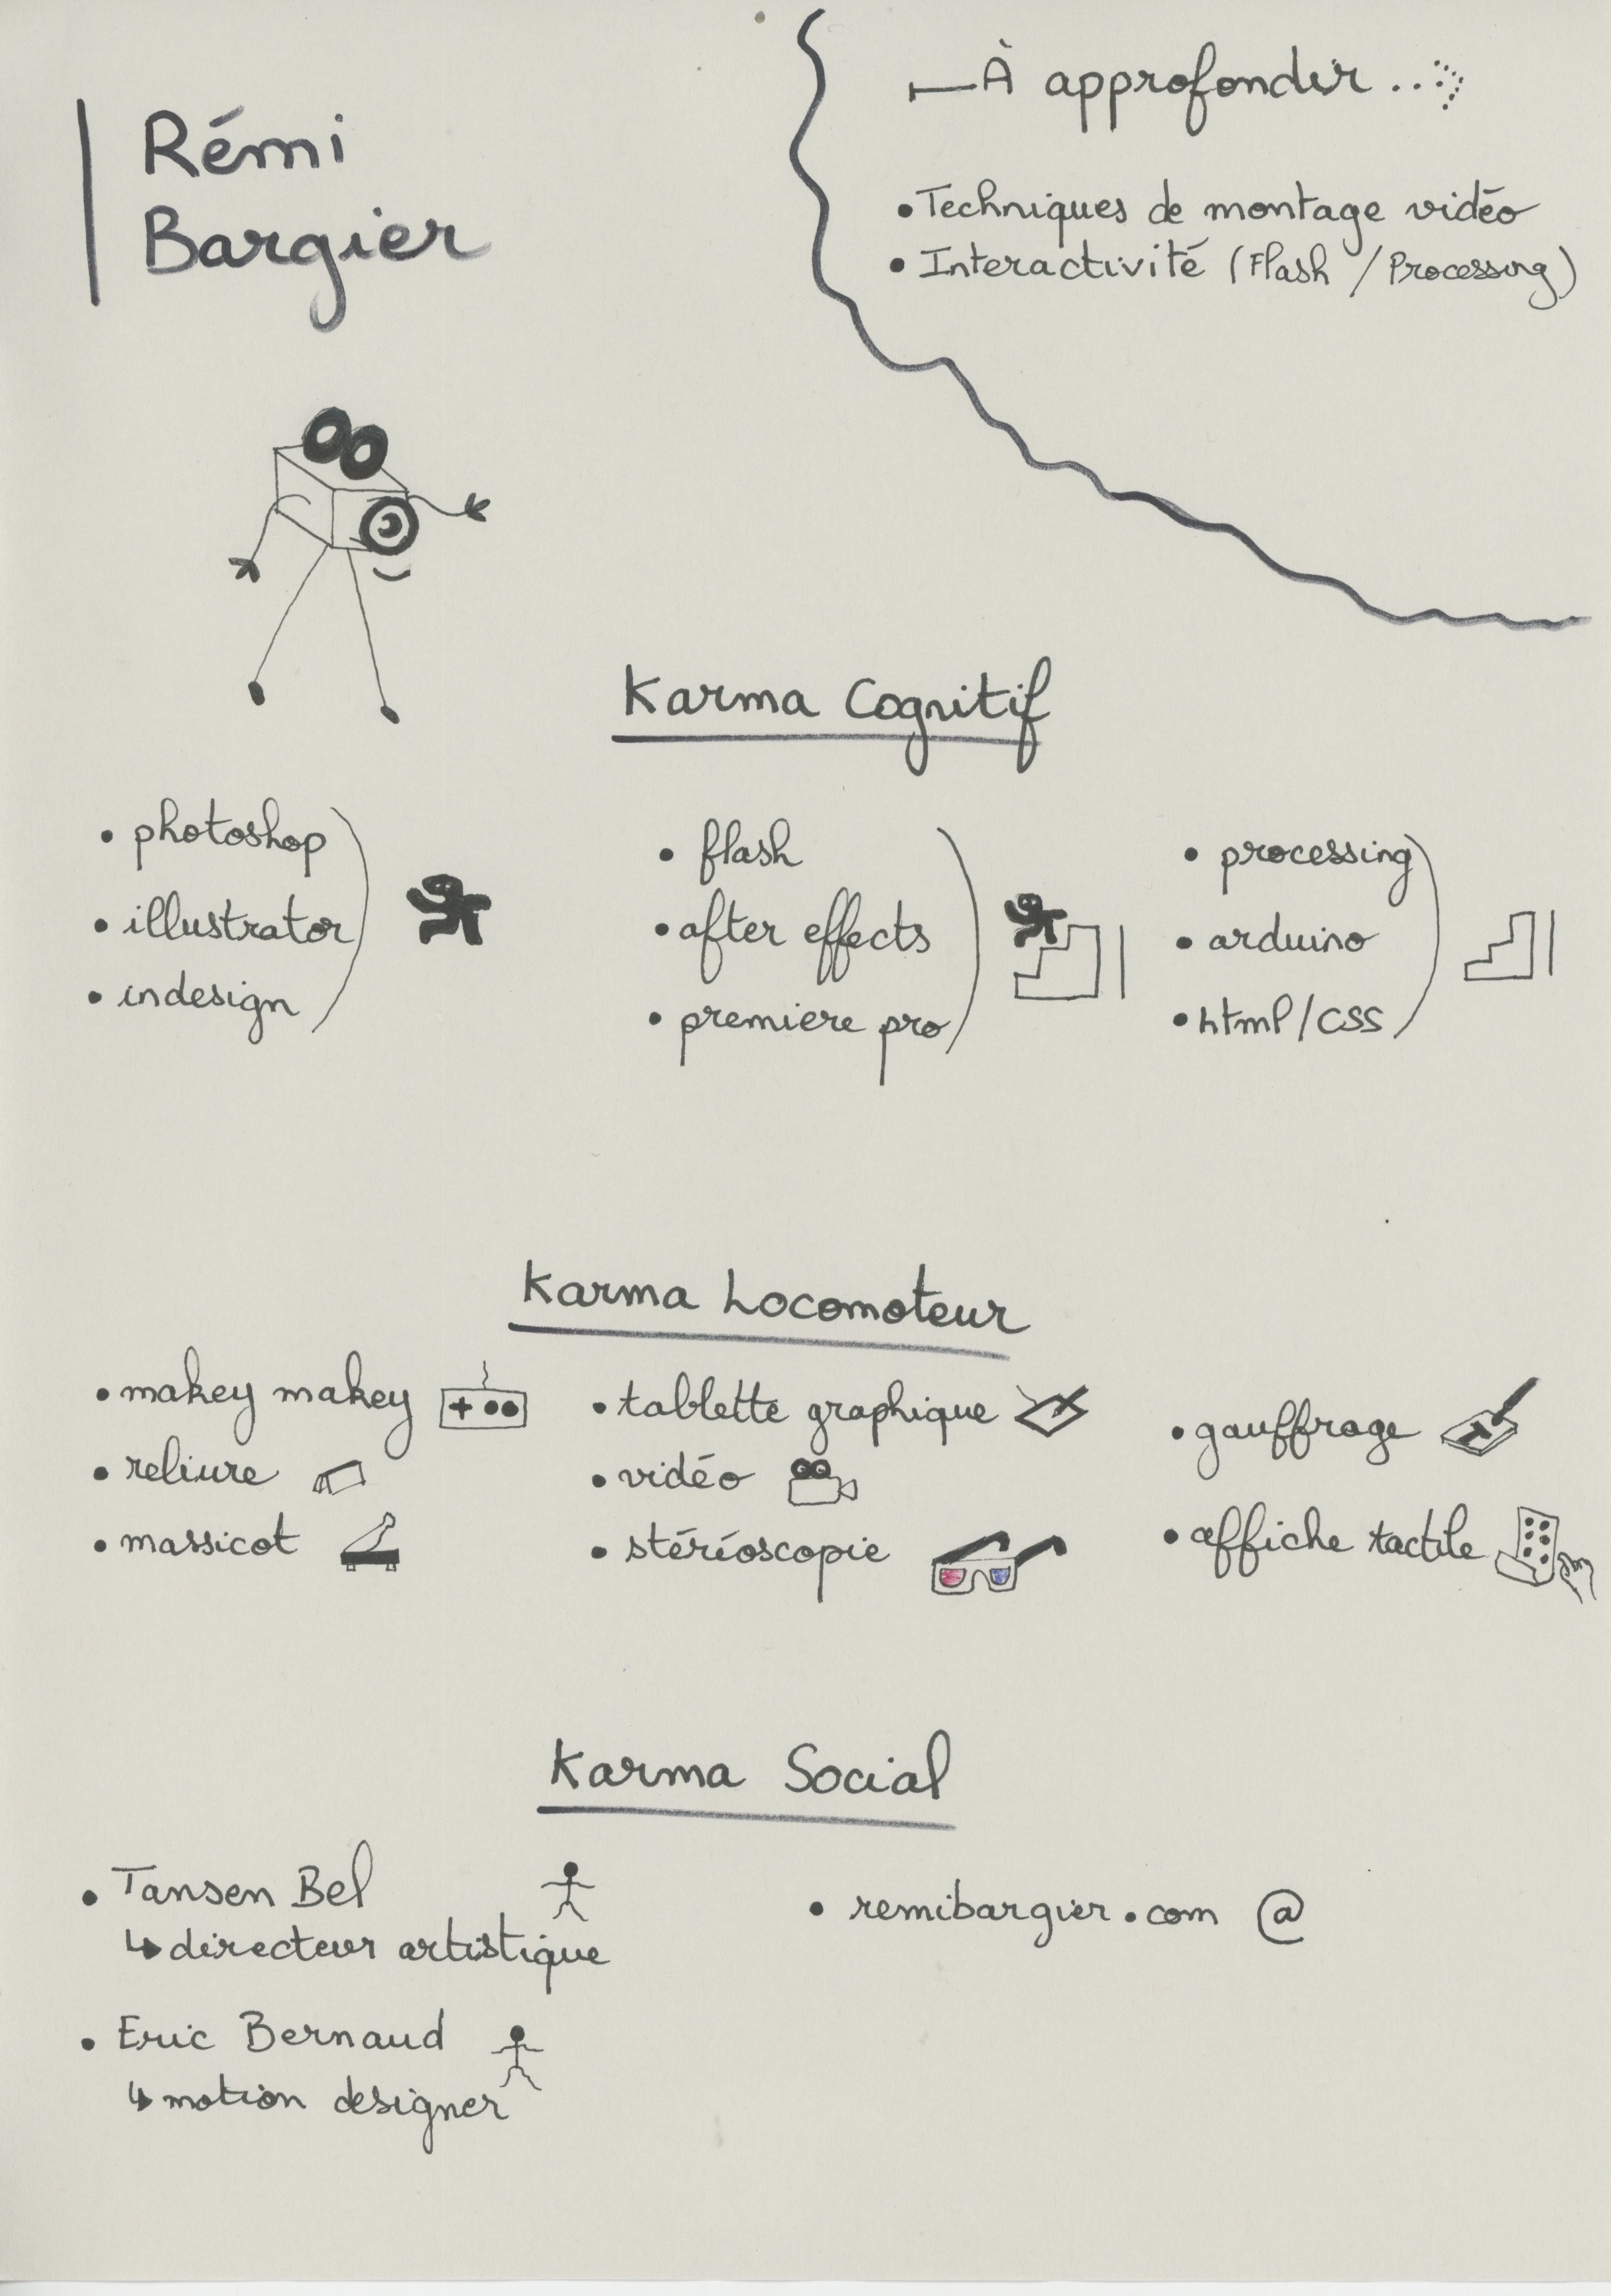 Rémi
Bargier
À approfondir ...
• Techniques de montage vidéo
• Interactivité (Flash / Processing)
Karma Cognitif
• photoshop
• illustrator
• indesign
• flash
• after effects
• premiere pro
• processing
• arduino
• html/CSS
Karma Locomoteur
• makey makey
• reliure
• massicot
• tablette graphique
• vidéo
• stéréoscopie
• gauffrage
• affiche tactile
Karma Social
• Tansen Bel
↳ directeur artistique
• Eric Bernaud
↳ motion designer
• remibargier.com @